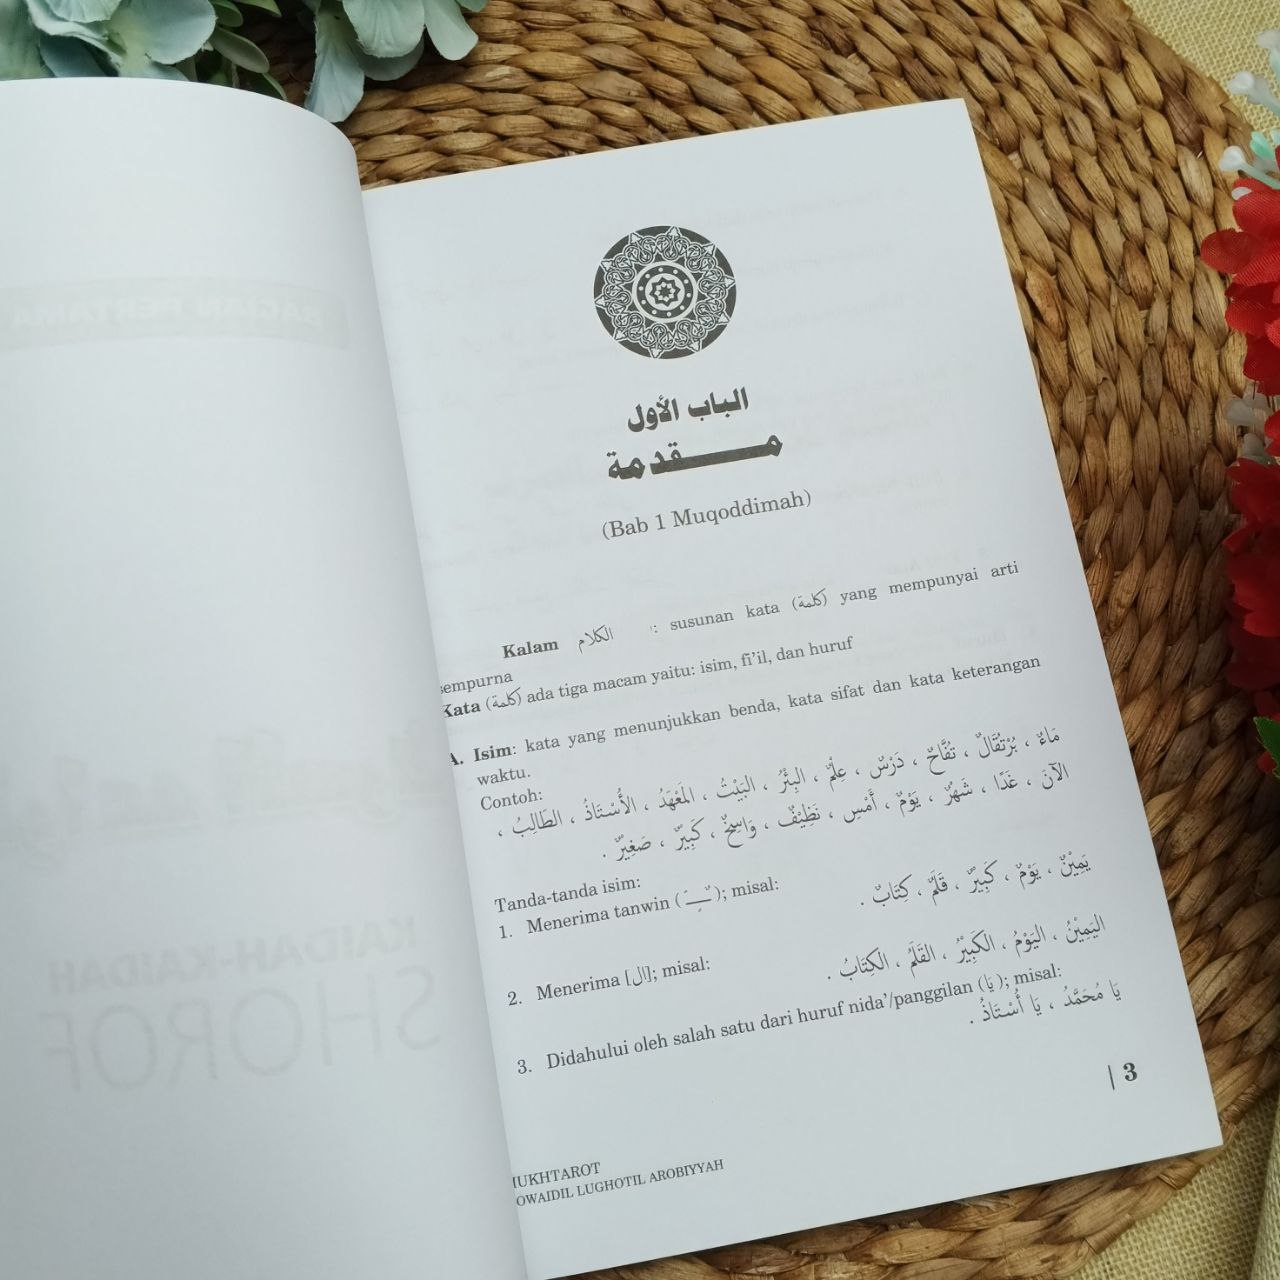 الباب الأول
مـــقدمة
(Bab 1 Muqoddimah)
Kalam الكلام : susunan kata (كلمة) yang mempunyai arti
sempurna
Kata (كلمة) ada tiga macam yaitu: isim, fi'il, dan huruf
A. Isim: kata yang menunjukkan benda, kata sifat dan kata keterangan
waktu.
Contoh:
مَاءٌ ، بُرْتُقَالٌ ، تفَّاحٌ ، دَرْسٌ ، عِلْمٌ ، البِئْرُ ، البَيْتُ ، المَعْهَدُ ، الأُسْتَاذُ ، الطَالِبُ ،
الآنَ ، غَدًا ، شَهْرٌ ، يَوْمٌ ، أَمْسِ ، نَظِيْفٌ ، وَاسِخٌ ، كَبِيْرٌ ، صَغِيْرٌ .
Tanda-tanda isim:
1. Menerima tanwin ( ـٌـٍـً ); misal:
يَمِيْنٌ ، يَوْمٌ ، كَبِيْرٌ ، قَلَمٌ ، كِتَابٌ .
2. Menerima [ال]; misal:
اليَمِيْنُ ، اليَوْمُ ، الكَبِيْرُ ، القَلَمُ ، الكِتَابُ .
3. Didahului oleh salah satu dari huruf nida'/panggilan (يَا ); misal:
يَا مُحَمَّدُ ، يَا أُسْتَاذُ .
| 3
MUKHTAROT
QOWAIDIL LUGHOTIL AROBIYYAH